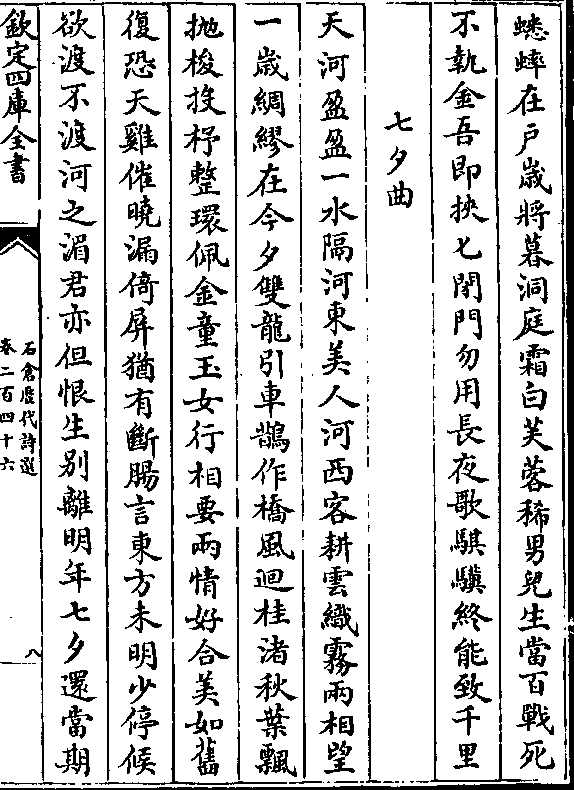 蟋蟀在戶歲將暮洞庭霜白芙蓉稀男兒生當百戰死
不執金吾即挾七閉門勿用長夜歌騏驥終能致千里
七夕曲
天河盈盈一水隔河東美人河西客耕雲織霧兩相望
一歲綢繆在今夕雙龍引車鵲作橋風迴桂渚秋葉飄
抛梭投杼整環佩金童玉女行相要兩情好合美如舊
復恐天雞催曉漏倚屏猶有斷腸言東方未明少停候
欲渡不渡河之湄君亦但恨生别離明年七夕還當期
欽定四庫全書
石倉歷代詩選
卷二百四十六
八